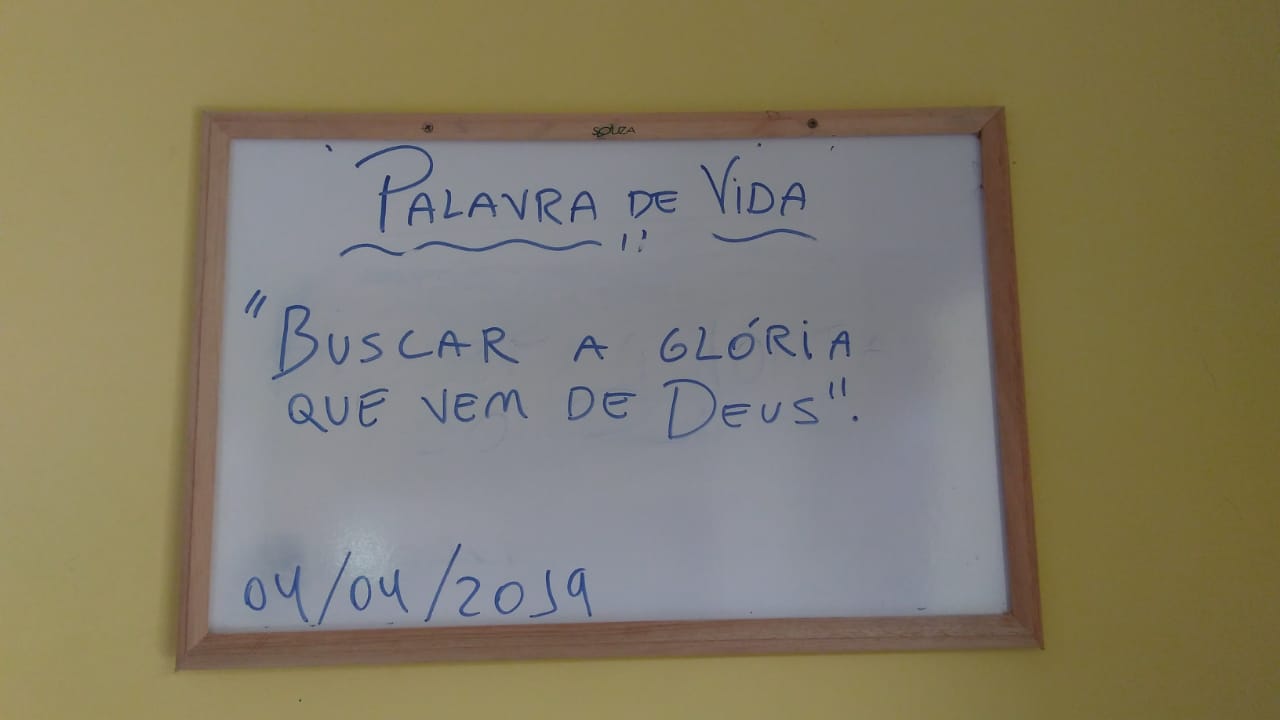 SOUZA
PALAVRA DE ViDA
"BUSCAR A GLÓRiA
QUE VEM DE DEUS".
04/04/2019